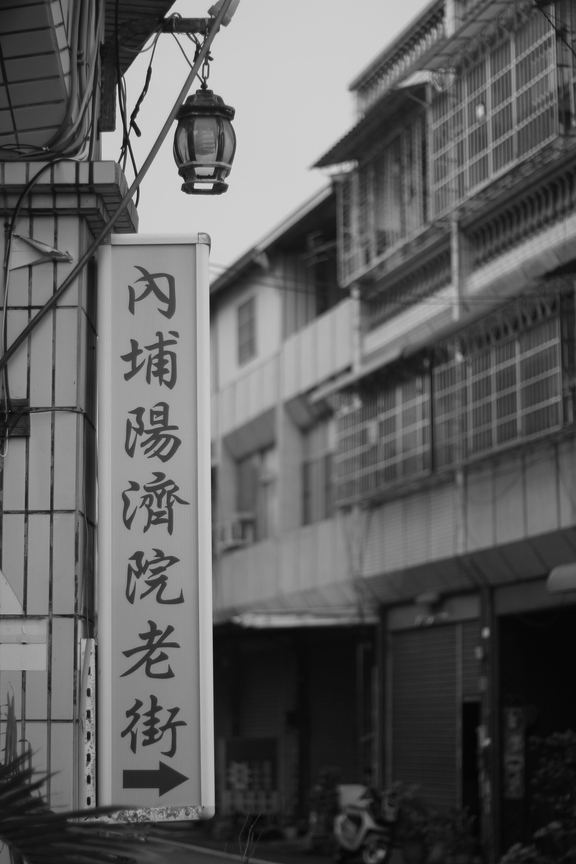 內埔陽濟院老街